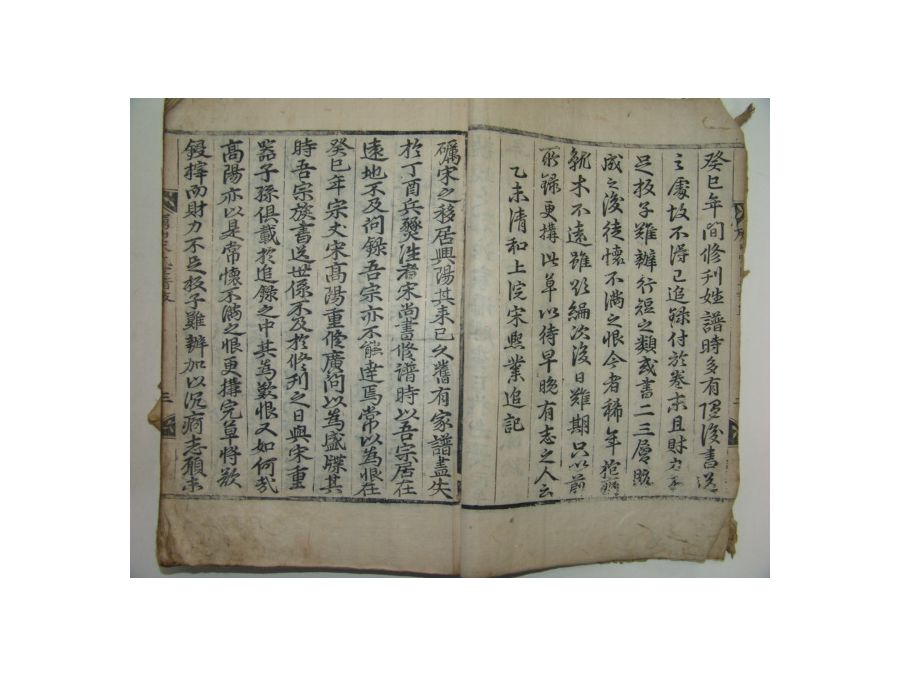 癸巳年間修刊姓譜時多有溍後書送
之處故不得已追録付於卷末且財力不
足板子難辦行短之類或書二三層略
成之後徒懷不滿之恨今者稀年
就木不遠雖欲編次後日難期只以前
所録更搆此草以待早晚有志之人云
乙未清和上浣宋煕業追記
礪宋之移居興陽其来已久舊有家譜盡失
於丁酉兵燹往者宋尚書修譜時以吾宗居在
遠地不及詢録吾宗亦不能達焉常以為恨在
癸巳年宗丈宋髙陽重修廣詢以為盛牒其
時吾宗族書送世係不及於修刊之日與宋重
器子孫俱載於追録之中其為歎恨又如何哉
髙陽亦以是常懷不滿之恨更搆完草將欲
鋟梓而財力不足板子難辦加以沉痾志願未